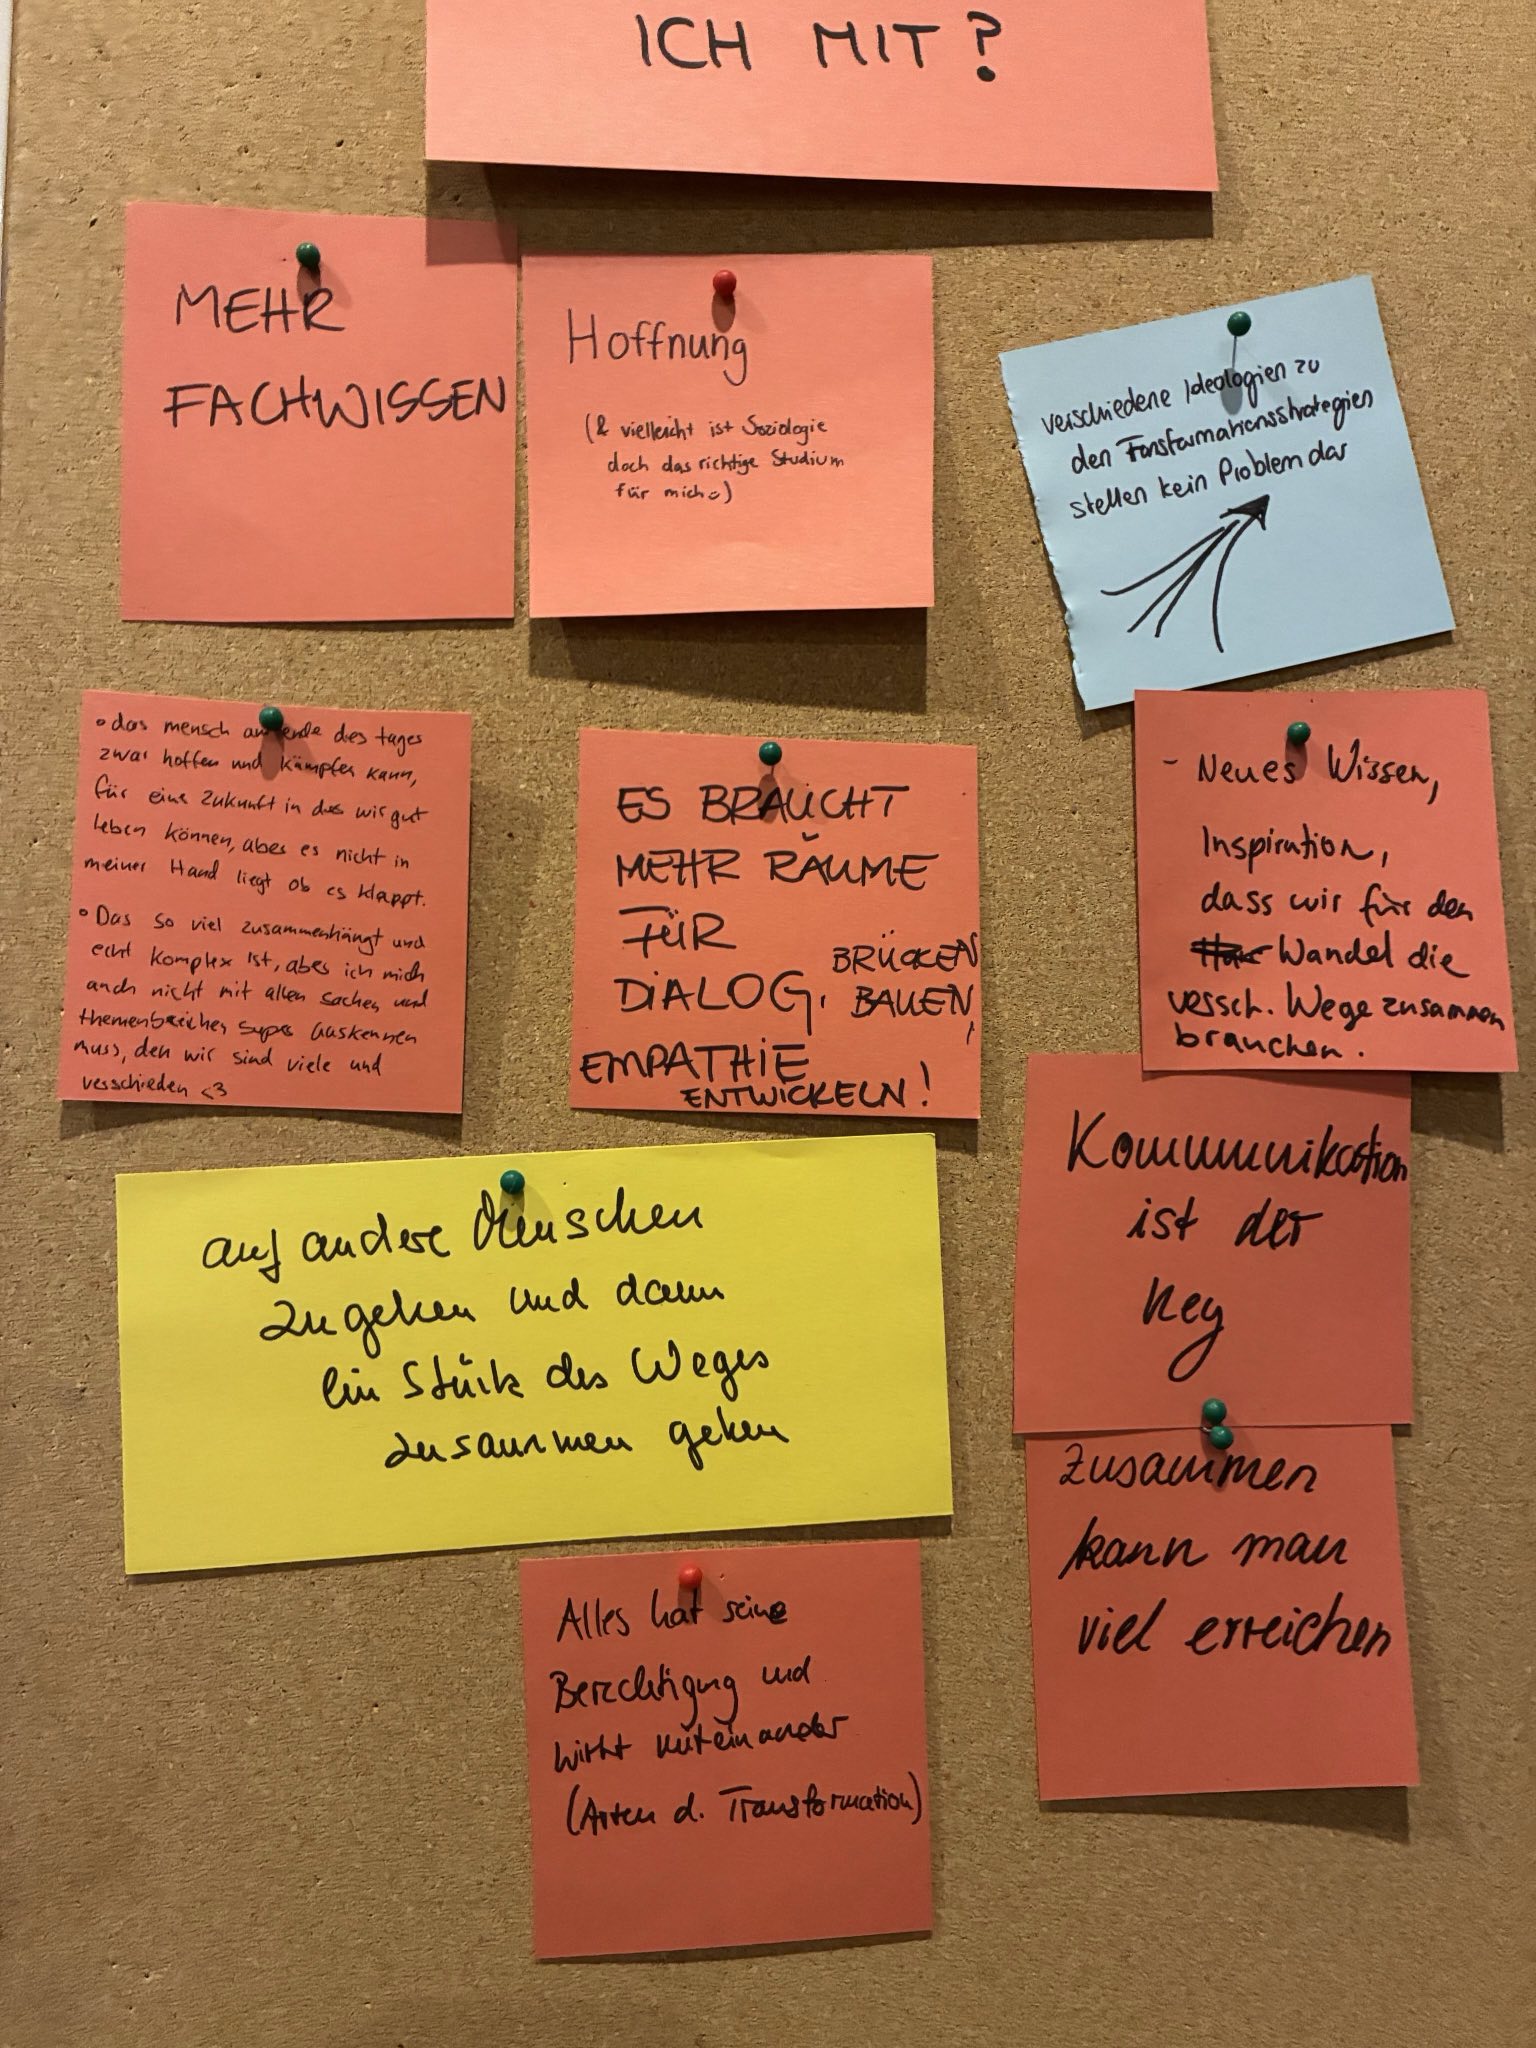 ICH MIT?
MEHR
FACHWISSEN
Hoffnung
(& vielleicht ist Soziologie
doch das richtige Studium
für mich☺)
verschiedene Ideologien zu
den Transformationsstrategien
stellen kein Problem dar
• das mensch am ende des tages
zwar hoffen und kämpfen kann,
für eine Zukunft in der wir gut
leben können, aber es nicht in
meiner Hand liegt ob es klappt.
• Das so viel zusammenhängt und
echt komplex ist, aber ich mich
auch nicht mit allen Sachen und
themenbereichen super auskennen
muss, den wir sind viele und
verschieden <3
ES BRAUCHT
MEHR RÄUME
FÜR
DIALOG, BRÜCKEN
BAUEN,
EMPATHIE
ENTWICKELN!
- Neues Wissen,
Inspiration,
dass wir für den
Wandel die
versch. Wege zusammen
brauchen.
auf andere Menschen
zugehen und dann
ein Stück des Weges
zusammen gehen
Kommunikation
ist der
Key
Zusammen
kann man
viel erreichen
Alles hat seine
Berechtigung und
wirkt miteinander
(Arten d. Transformation)